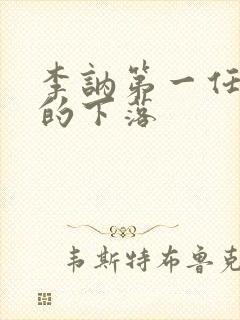 李訥第一任
的下落
韦斯特布鲁克